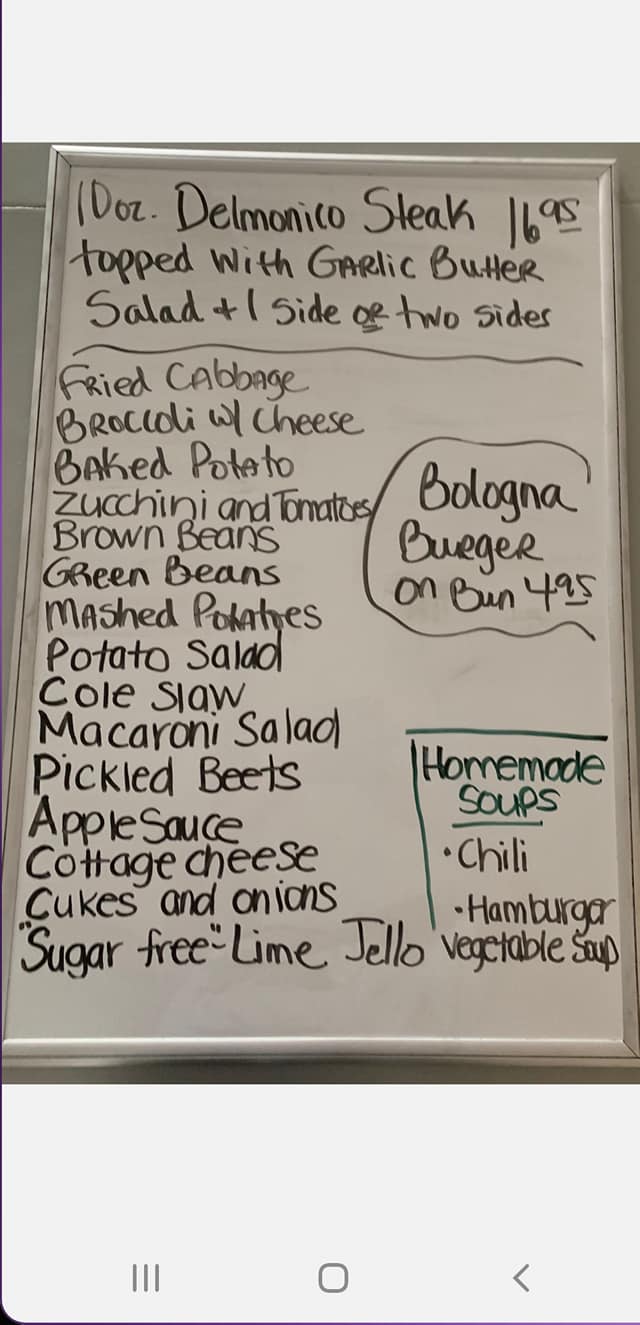 10oz. Delmonico Steak 16.95
topped with Garlic Butter
Salad + 1 side or two sides
Fried Cabbage
Broccoli w/ Cheese
Baked Potato
Zucchini and Tomatoes
Brown Beans
Green Beans
Mashed Potatoes
Potato Salad
Cole Slaw
Macaroni Salad
Pickled Beets
Apple Sauce
Cottage cheese
Cukes and onions
"Sugar free" Lime Jello
Bologna
Burger
on Bun 4.95
Homemade
Soups
·Chili
·Hamburger
Vegetable Soup